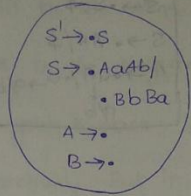 S' → •S
S → •AaAb/
•BbBa
A → •
B → •